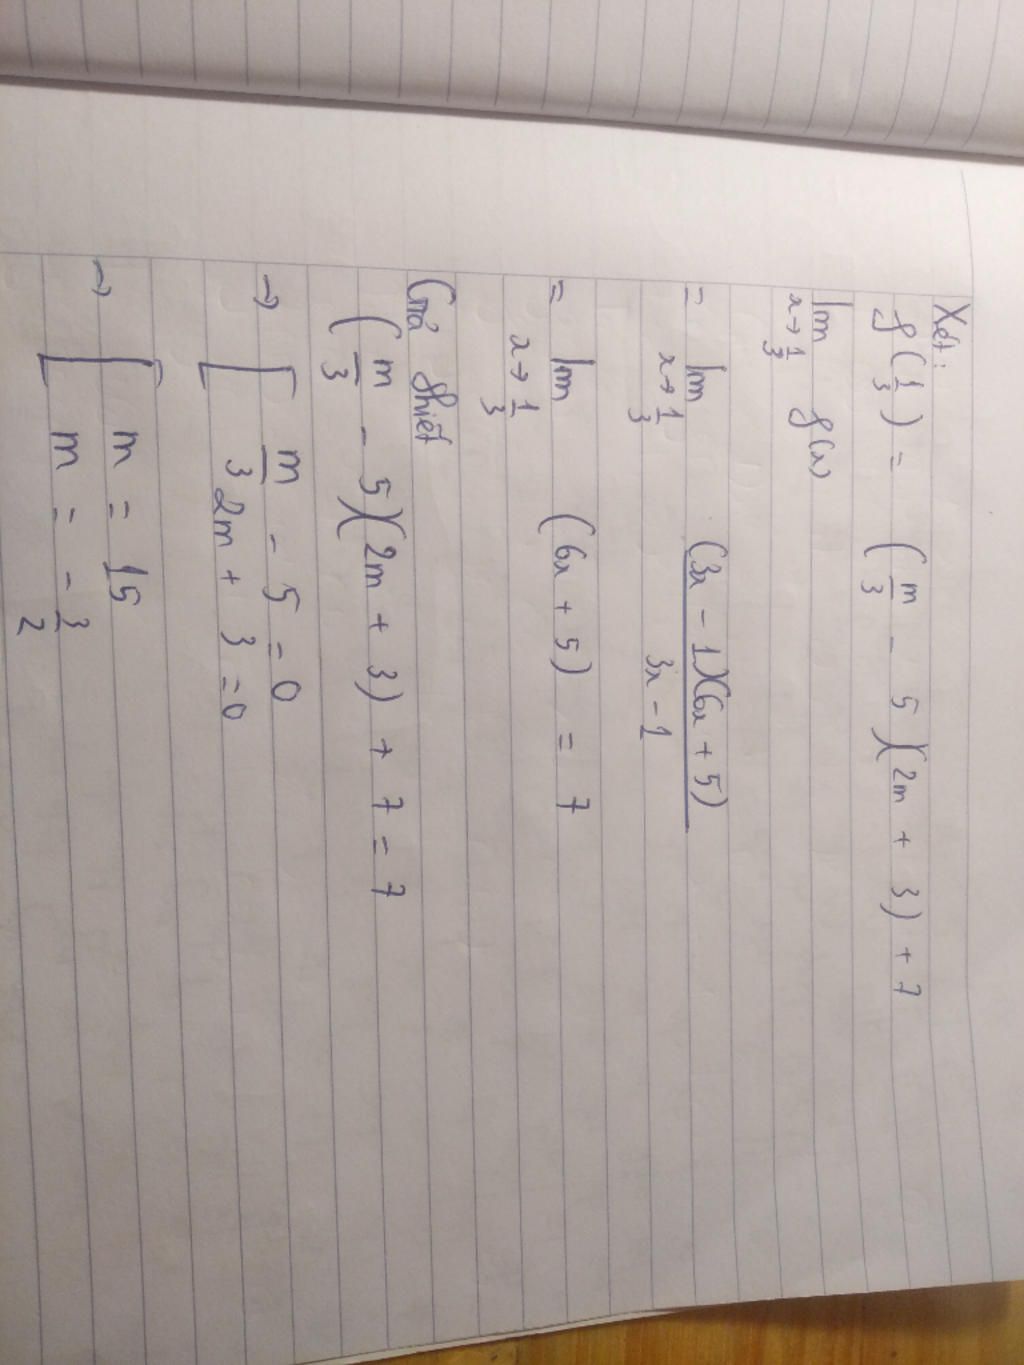 Xét:
f(1/3) = (m/3 - 5)(2m + 3) + 7
lim x→1/3 f(x)
= lim x→1/3 (3x - 1)(6x + 5) / 3x - 1
= lim x→1/3 (6x + 5) = 7
Giả thiết
(m/3 - 5)(2m + 3) + 7 = 7
→ [ m/3 - 5 = 0
2m + 3 = 0
→ [ m = 15
m = - 3/2